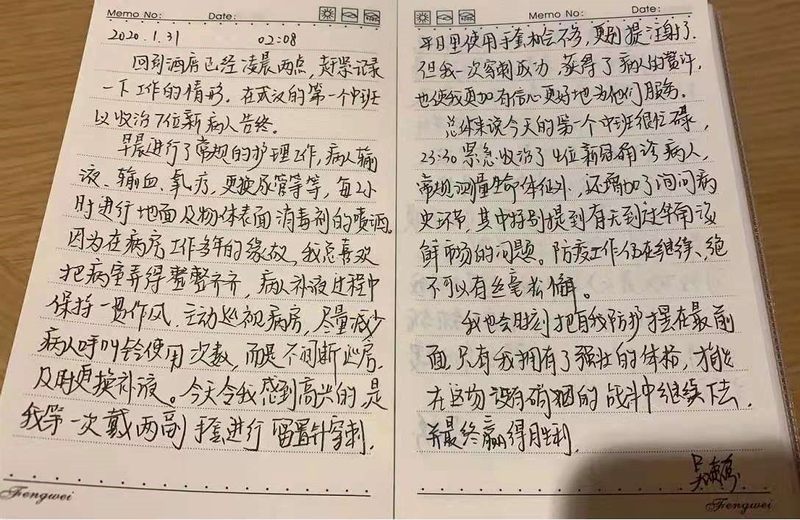 Memo No:
Date:
2020.1.31 02:08
回到酒店已经凌晨两点，赶紧记录
一下工作的情形，在武汉的第一个中班
以收治7位新病人告终。
早晨进行了常规的护理工作，病人输
液、输血、氧疗，更换尿管等等，每2小
时进行地面及物体表面消毒剂的喷洒。
因为在病房工作多年的缘故，我总喜欢
把病室弄得整整齐齐，病人补液过程中
保持一贯作风，主动巡视病房，尽量减少
病人呼叫铃使用次数，而是不间断巡房，
及时更换补液。今天令我感到高兴的，是
我第一次戴两副手套进行留置针穿刺，
Fengwei
Memo No:
Date:
平日里使用手套机会不多，更别提注射了.
但我一次穿刺成功，获得了病人的赞许，
也使我更加有信心更好地为他们服务。
总体来说今天的第一个中班很忙碌，
23:30紧急收治了4位新冠确诊病人，
常规测量生命体征外，还增加了询问病
史环节，其中特别提到有无到过华南海
鲜市场的问题。防疫工作仍在继续、绝
不可以有丝毫松懈。
我也会时刻把自我防护摆在最前
面，只有我拥有了强壮的体格，才能
在这场没有硝烟的战斗中继续下去，
并最终赢得胜利.
Fengwei